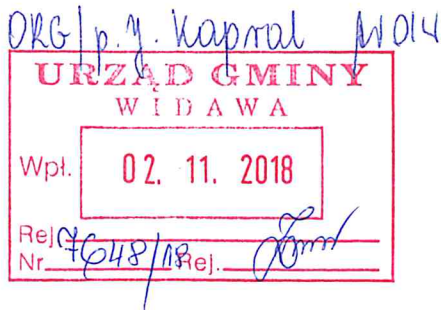 ORG/p. J. Kapral
URZĄD GMINY
WIDAWA
Wpł. 02. 11. 2018
Rej.
Nr 7648/18 Rej.